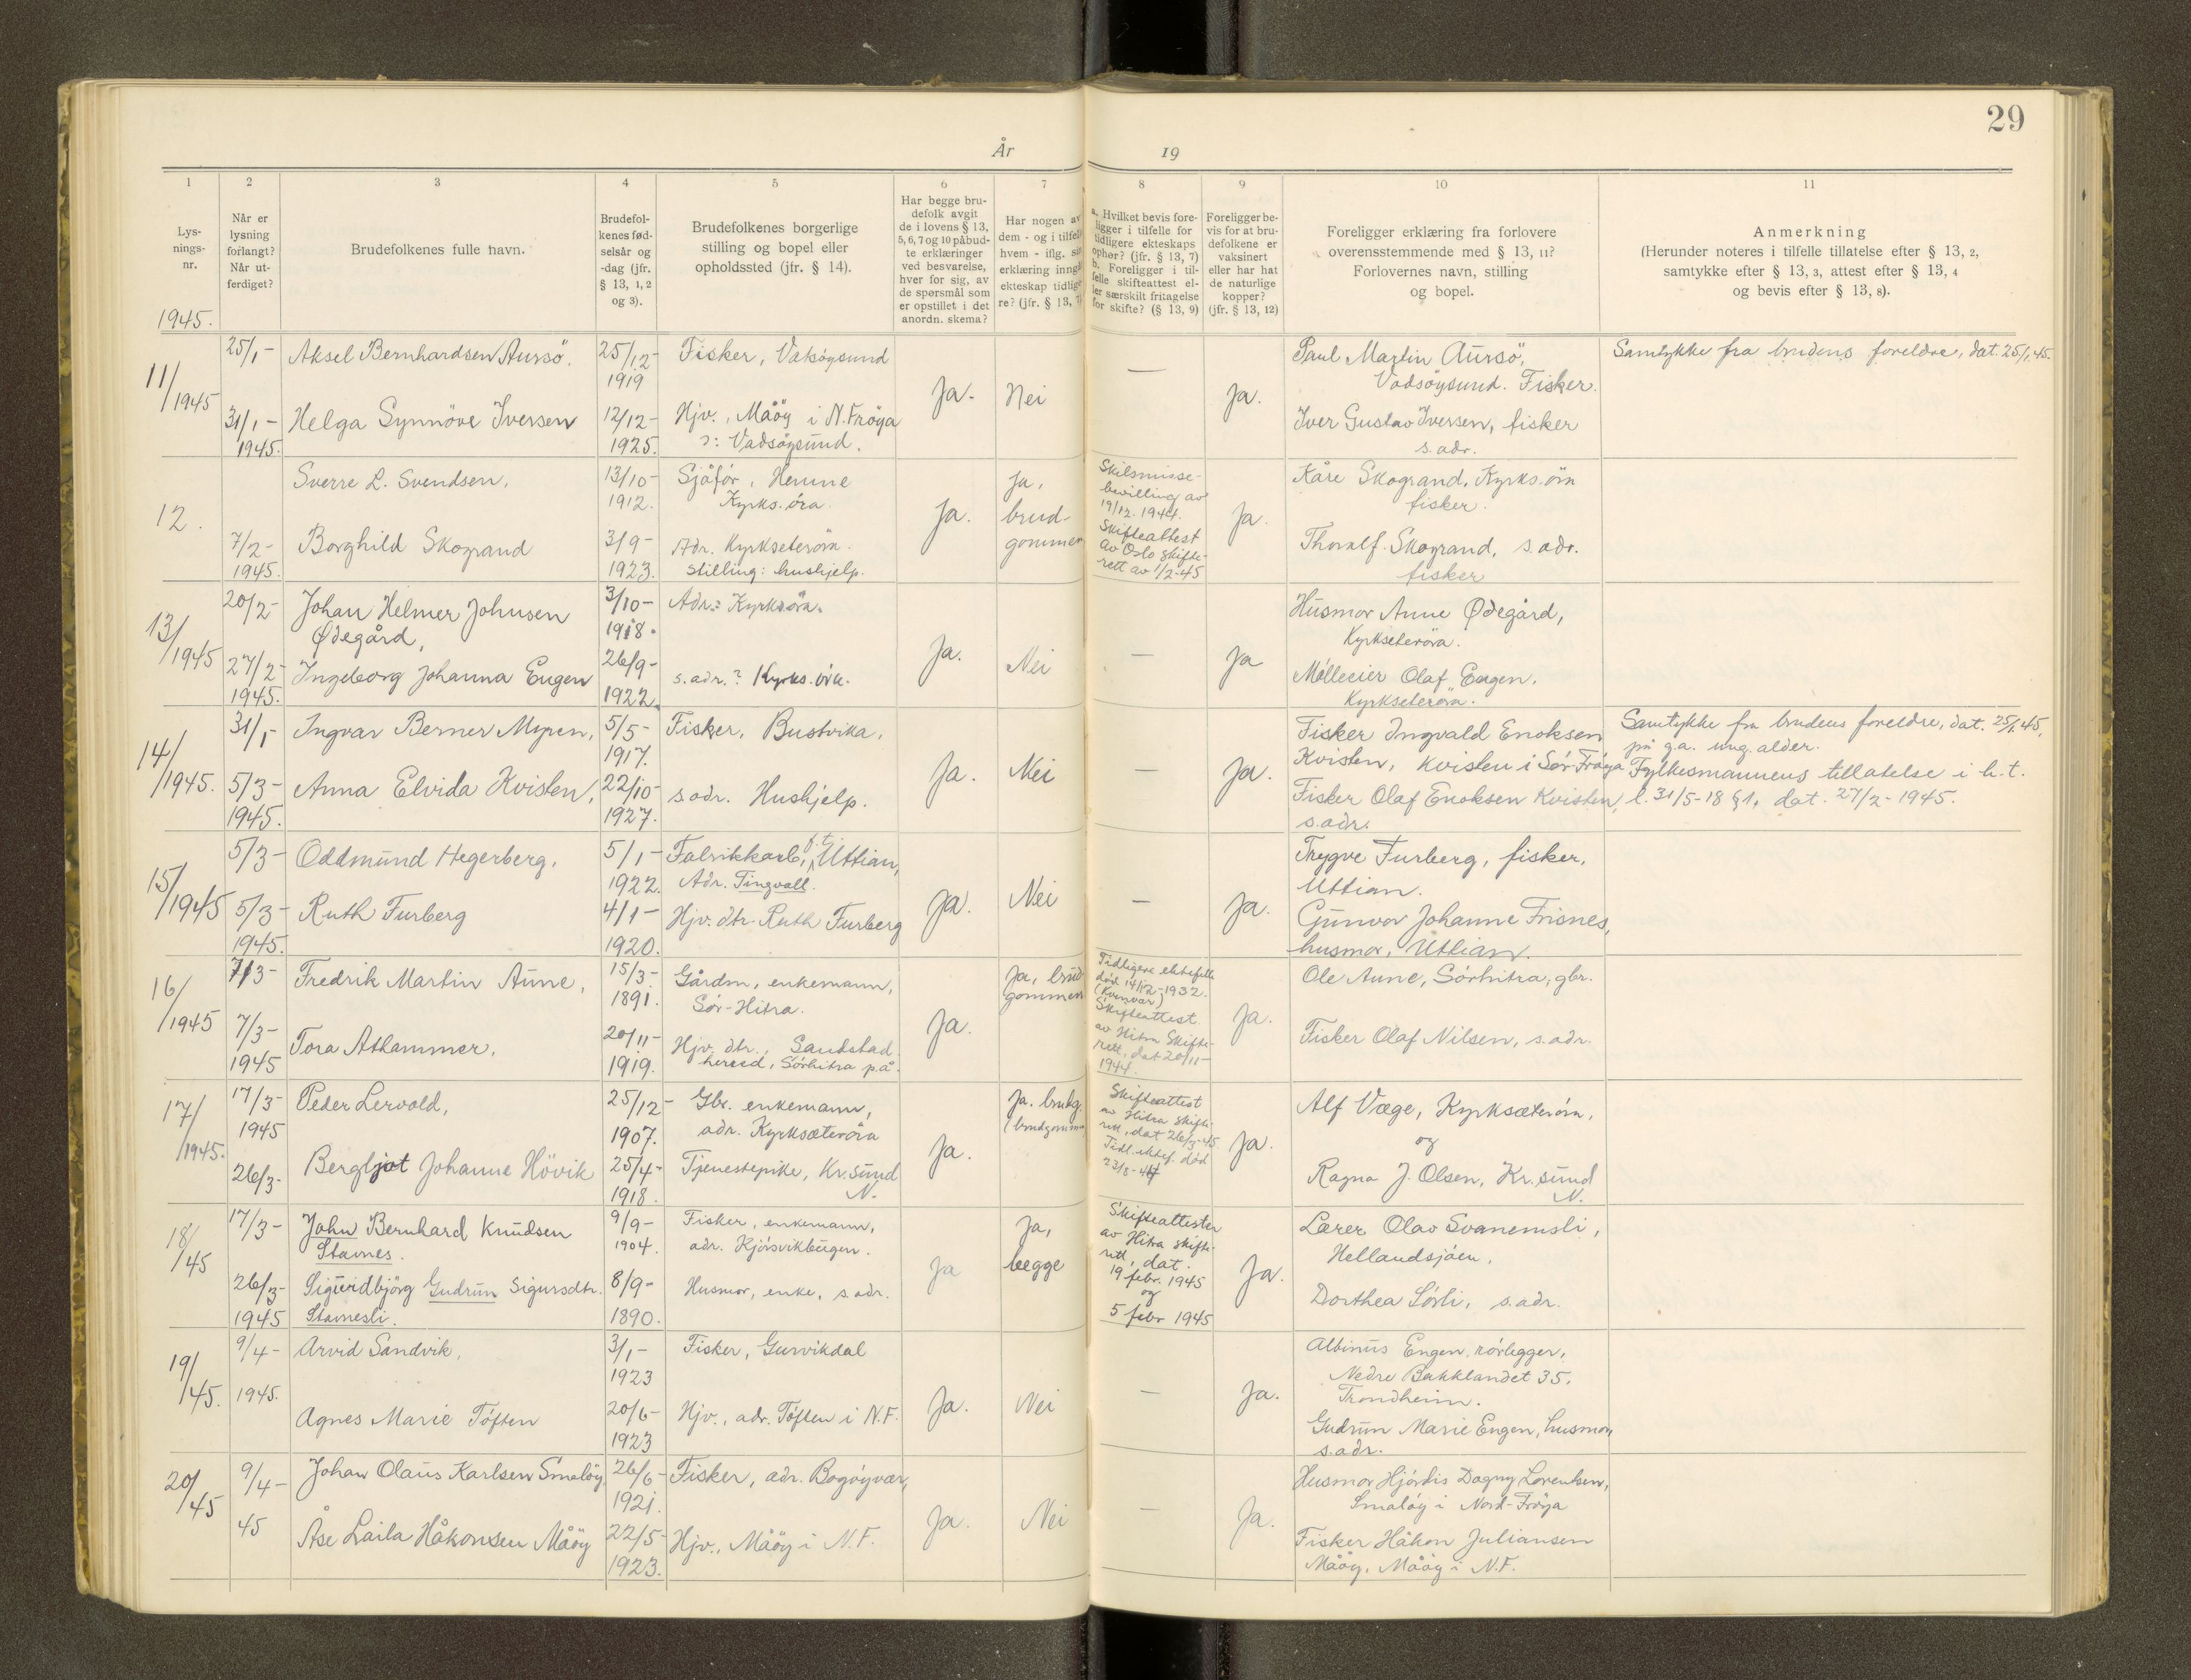 29
År 19
1 2 3 4 5 6 7 8 9 10 11
Lys-
nings-
nr.
Når er
lysning
forlangt?
Når ut-
ferdiget?
Brudefolkenes fulle navn.
Brudefol-
kenes fød-
selsår og
-dag (jfr.
§ 13, 1, 2
og 3).
Brudefolkenes borgerlige
stilling og bopel eller
opholdssted (jfr. § 14).
Har begge bru-
defolk avgit
de i lovens § 13,
5, 6, 7 og 10 påbud-
te erklæringer
ved besvarelse,
hver for sig, av
de spørsmål som
er opstillet i det
anordn. skema?
Har nogen av
dem - og i tilfelle
hvem - iflg. sin
erklæring inngå
ekteskap tidlige
re? (jfr. § 13, 7)
a. Hvilket bevis fore-
ligger i tilfelle for
tidligere ekteskaps
ophør? (jfr. § 13, 7)
b. Foreligger i til-
felle skifteattest el-
ler særskilt fritagelse
for skifte? (§ 13, 9)
Foreligger be-
vis for at bru-
defolkene er
vaksinert
eller har hat
de naturlige
kopper?
(jfr. § 13, 12)
Foreligger erklæring fra forlovere
overensstemmende med § 13, 11?
Forlovernes navn, stilling
og bopel.
Anmerkning
(Herunder noteres i tilfelle tillatelse efter § 13, 2,
samtykke efter § 13, 3, attest efter § 13, 4
og bevis efter § 13, 8).
1945.
11/1945
25/1-
31/1-
1945.
Aksel Bernhardsen Aursö.
Helga Synnöve Iversen
25/12-
1919
12/12-
1925.
Fisker, Vaksöysund
Hjv., Måöy i N. Fröya
?: Vadsöysund.
Ja.
Nei
—
Ja.
Paul Martin Aursö,
Vadsöysund. Fisker.
Iver Gustav Iversen, fisker
s. adr.
Samtykke fra brudens foreldre, dat. 25/1.45.
12.
7/2-
1945.
Sverre L. Svendsen,
Borghild Skogrand
13/10-
1912.
3/9-
1923.
Sjåför, Hemne
Kyrks.öra.
Adr. Kyrkseteröra.
stilling: hushjelp.
Ja.
Ja,
brud-
gommen
Skilsmisse-
bevilling av
19/12. 1944.
Skifteattest
av Oslo skifte-
rett av 1/2-45
Ja.
Kåre Skogrand, Kyrks.öra
fisker.
Thoralf Skogrand, s. adr.
fisker
13/1945
20/2-
27/2-
1945.
Johan Helmer Johnsen
Ødegård,
Ingeborg Johanna Eugen
3/10-
1918.
26/9-
1922.
Adr.: Kyrksöra.
s. adr.? Kyrks.öra.
Ja.
Nei
—
Ja
Husmor Anne Ødegård,
Kyrkseteröra.
Mölleeier Olaf Engen,
Kyrkseteröra.
14/1945.
31/1-
5/3-
1945.
Ingvar Berner Myren,
Anna Elvida Kvisten,
5/5-
1917.
22/10-
1927.
Fisker, Bustvika,
s. adr. Hushjelp.
Ja.
Nei
—
Ja.
Fisker Ingvald Enoksen
Kvisten, Kvisten i Sör-Fröya
Fisker Olaf Enoksen Kvisten,
s. adr.
Samtykke fra brudens foreldre, dat. 25/1.45,
på g.a. ung. alder.
Fylkesmannens tillatelse i h.t.
l. 31/5-18 § 1, dat. 27/2-1945.
15/1945
5/3-
5/3-
1945.
Oddmund Hegerberg,
Ruth Furberg
5/1-
1922.
4/1-
1920.
Fabrikkarb., f.t. Uttian,
Adr. Tingvall.
Hjv. dtr. Ruth Furberg
Ja.
Nei
—
Ja.
Trygve Furberg, fisker,
Uttian.
Gunvor Johanne Frisnes,
husmor, Uttian.
16/1945
7/3-
7/3-
1945
Fredrik Martin Aune,
Tora Athammer,
15/3-
1891.
20/11-
1919.
Gårdm, enkemann,
Sör-Hitra.
Hjv. dtr., Sandstad
herred, Sörhitra p.å.
Ja.
Ja, brud
gommen
Tidligere ektefelle
död 14/12-1932.
(Kvenvær)
Skifteattest
av Hitra Skifte-
rett, dat 20/11-
1944.
Ja.
Ole Aune, Sörhitra, gbr.
Fisker Olaf Nilsen, s. adr.
17/1945.
17/3-
1945
26/3-
Peder Lervold,
Bergljot Johanne Hövik
25/12-
1907.
25/4-
1918.
Gbr. enkemann,
adr. Kyrksæteröra
Tjenestepike, Kr.sund
N.
Ja.
Ja. brudg.
(brudgomm
Skifteattest
av Hitra skifte-
rett, dat 26/3-45
Tidl. ektef. död
23/8-44
Ja.
Alf Væge, Kyrksæteröra,
og
Ragna J. Olsen, Kr.sund
N.
18/45
17/3-
26/3-
1945
John Bernhard Knudsen
Stavnes.
Sigurdbjörg Gudrun Sigursdtr.
Stavnesli.
9/9-
1904.
8/9-
1890.
Fisker, enkemann,
adr. Kjörsvikbugen.
Husmor, enke, s. adr.
Ja
Ja,
begge
Skifteattester
av Hitra skifte-
rett, dat.
19 febr. 1945
og
5 febr 1945
Ja.
Lærer Olav Svanemsli,
Hellandsjöen,
Dorthea Sörli, s. adr.
19/45.
9/4-
1945.
Arvid Sandvik,
Agnes Marie Töften
3/1-
1923
20/6-
1923
Fisker, Gurvikdal
Hjv., adr. Töften i N.F.
Ja.
Nei
—
Ja.
Albinus Engen, rörlegger,
Nedre Bakklandet 35,
Trondheim.
Gudrun Marie Engen, husmor,
s. adr.
20/45
9/4-
45
Johan Olaus Karlsen Småöy,
Åse Laila Håkonsen Måöy
26/6-
1921.
22/5-
1923.
Fisker, adr. Bogöyvær,
Hjv., Måöy i N.F.
Ja.
Nei
—
Ja.
Husmor Hjördis Dagny Lorentsen,
Småöy i Nord-Fröya
Fisker Håkon Juliansen
Måöy, Måöy i N.F.